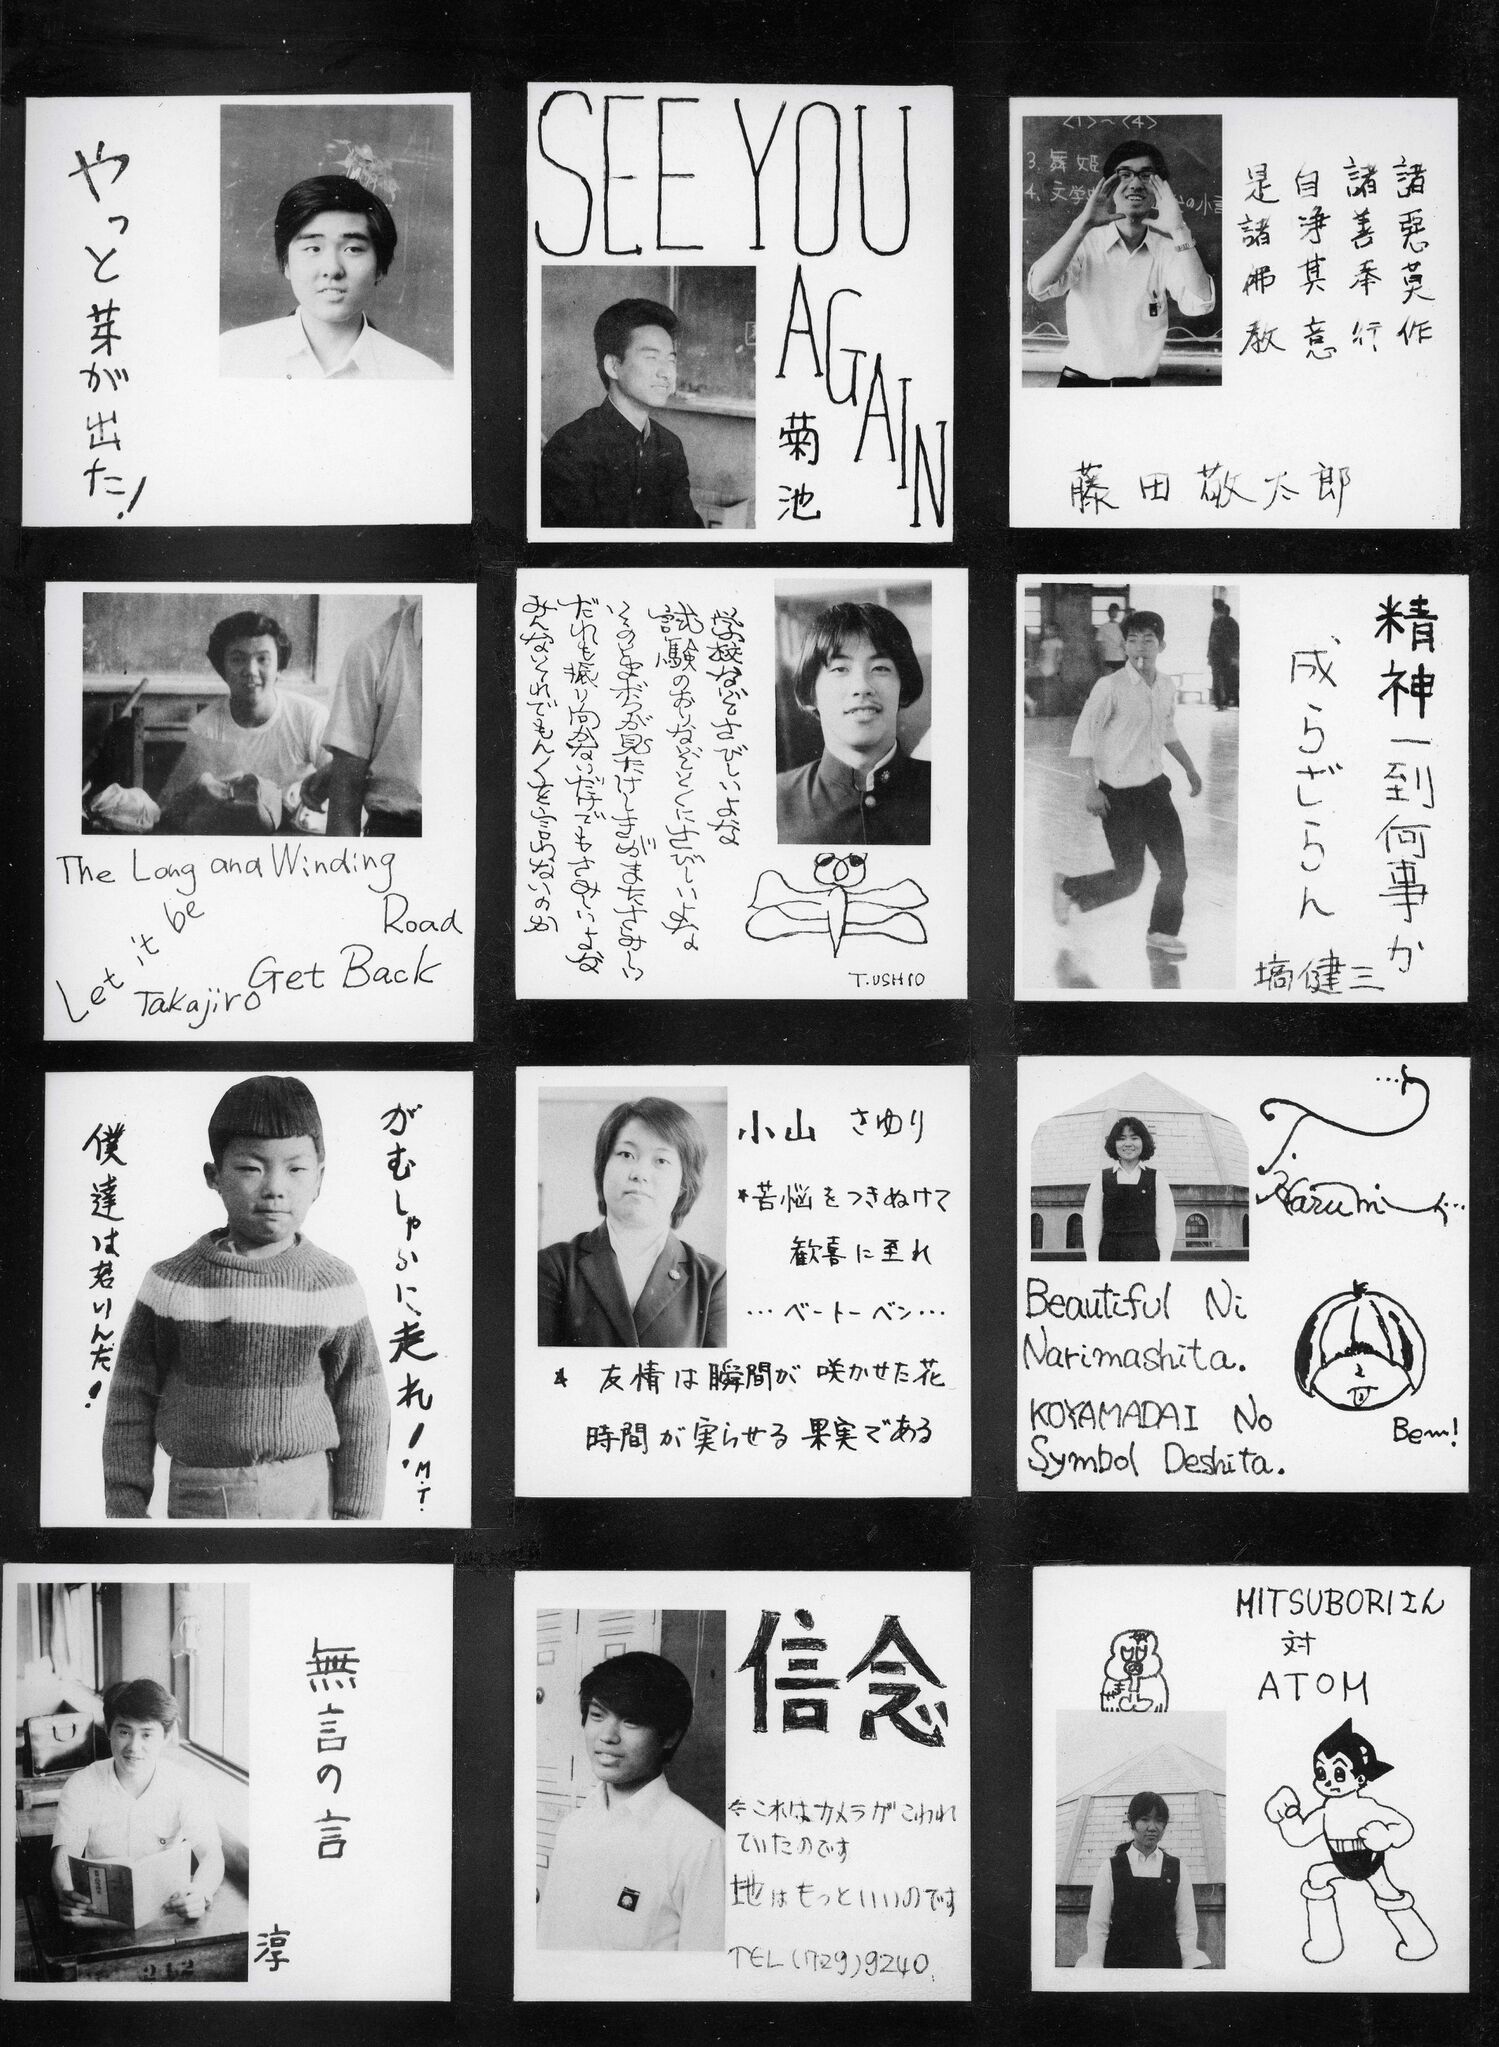 やっと芽が出た!
SEE YOU
AGAIN
菊池
<1>~<4>
3. 舞姫
4. 文学
の小
諸悪莫作
諸善奉行
自浄其意
是諸佛教
藤田敬太郎
The Long and Winding
Road
Let it be
Get Back
Takajiro
学校なんてさびしいよな
だれも振り向かないだけでもさみしいよな
みんなそれでもんくを言わないのか
T. USHIO
精神一到何事か
成らざらん
塙健三
がむしゃらに走れ!
M.T.
僕達は若いんだ!
小山 さゆり
*苦悩をつきぬけて
歓喜に至れ
…ベートーベン…
* 友情は瞬間が咲かせた花
時間が実らせる果実である
T.
Harumi
Beautiful Ni
Narimashita.
KOYAMADAI No
Symbol Deshita.
Bem!
無言の言
淳
212
信念
これはカメラがこわれ
ていたのです
地はもっといいのです
TEL (729) 9240.
MITSUBORIさん
対
ATOM